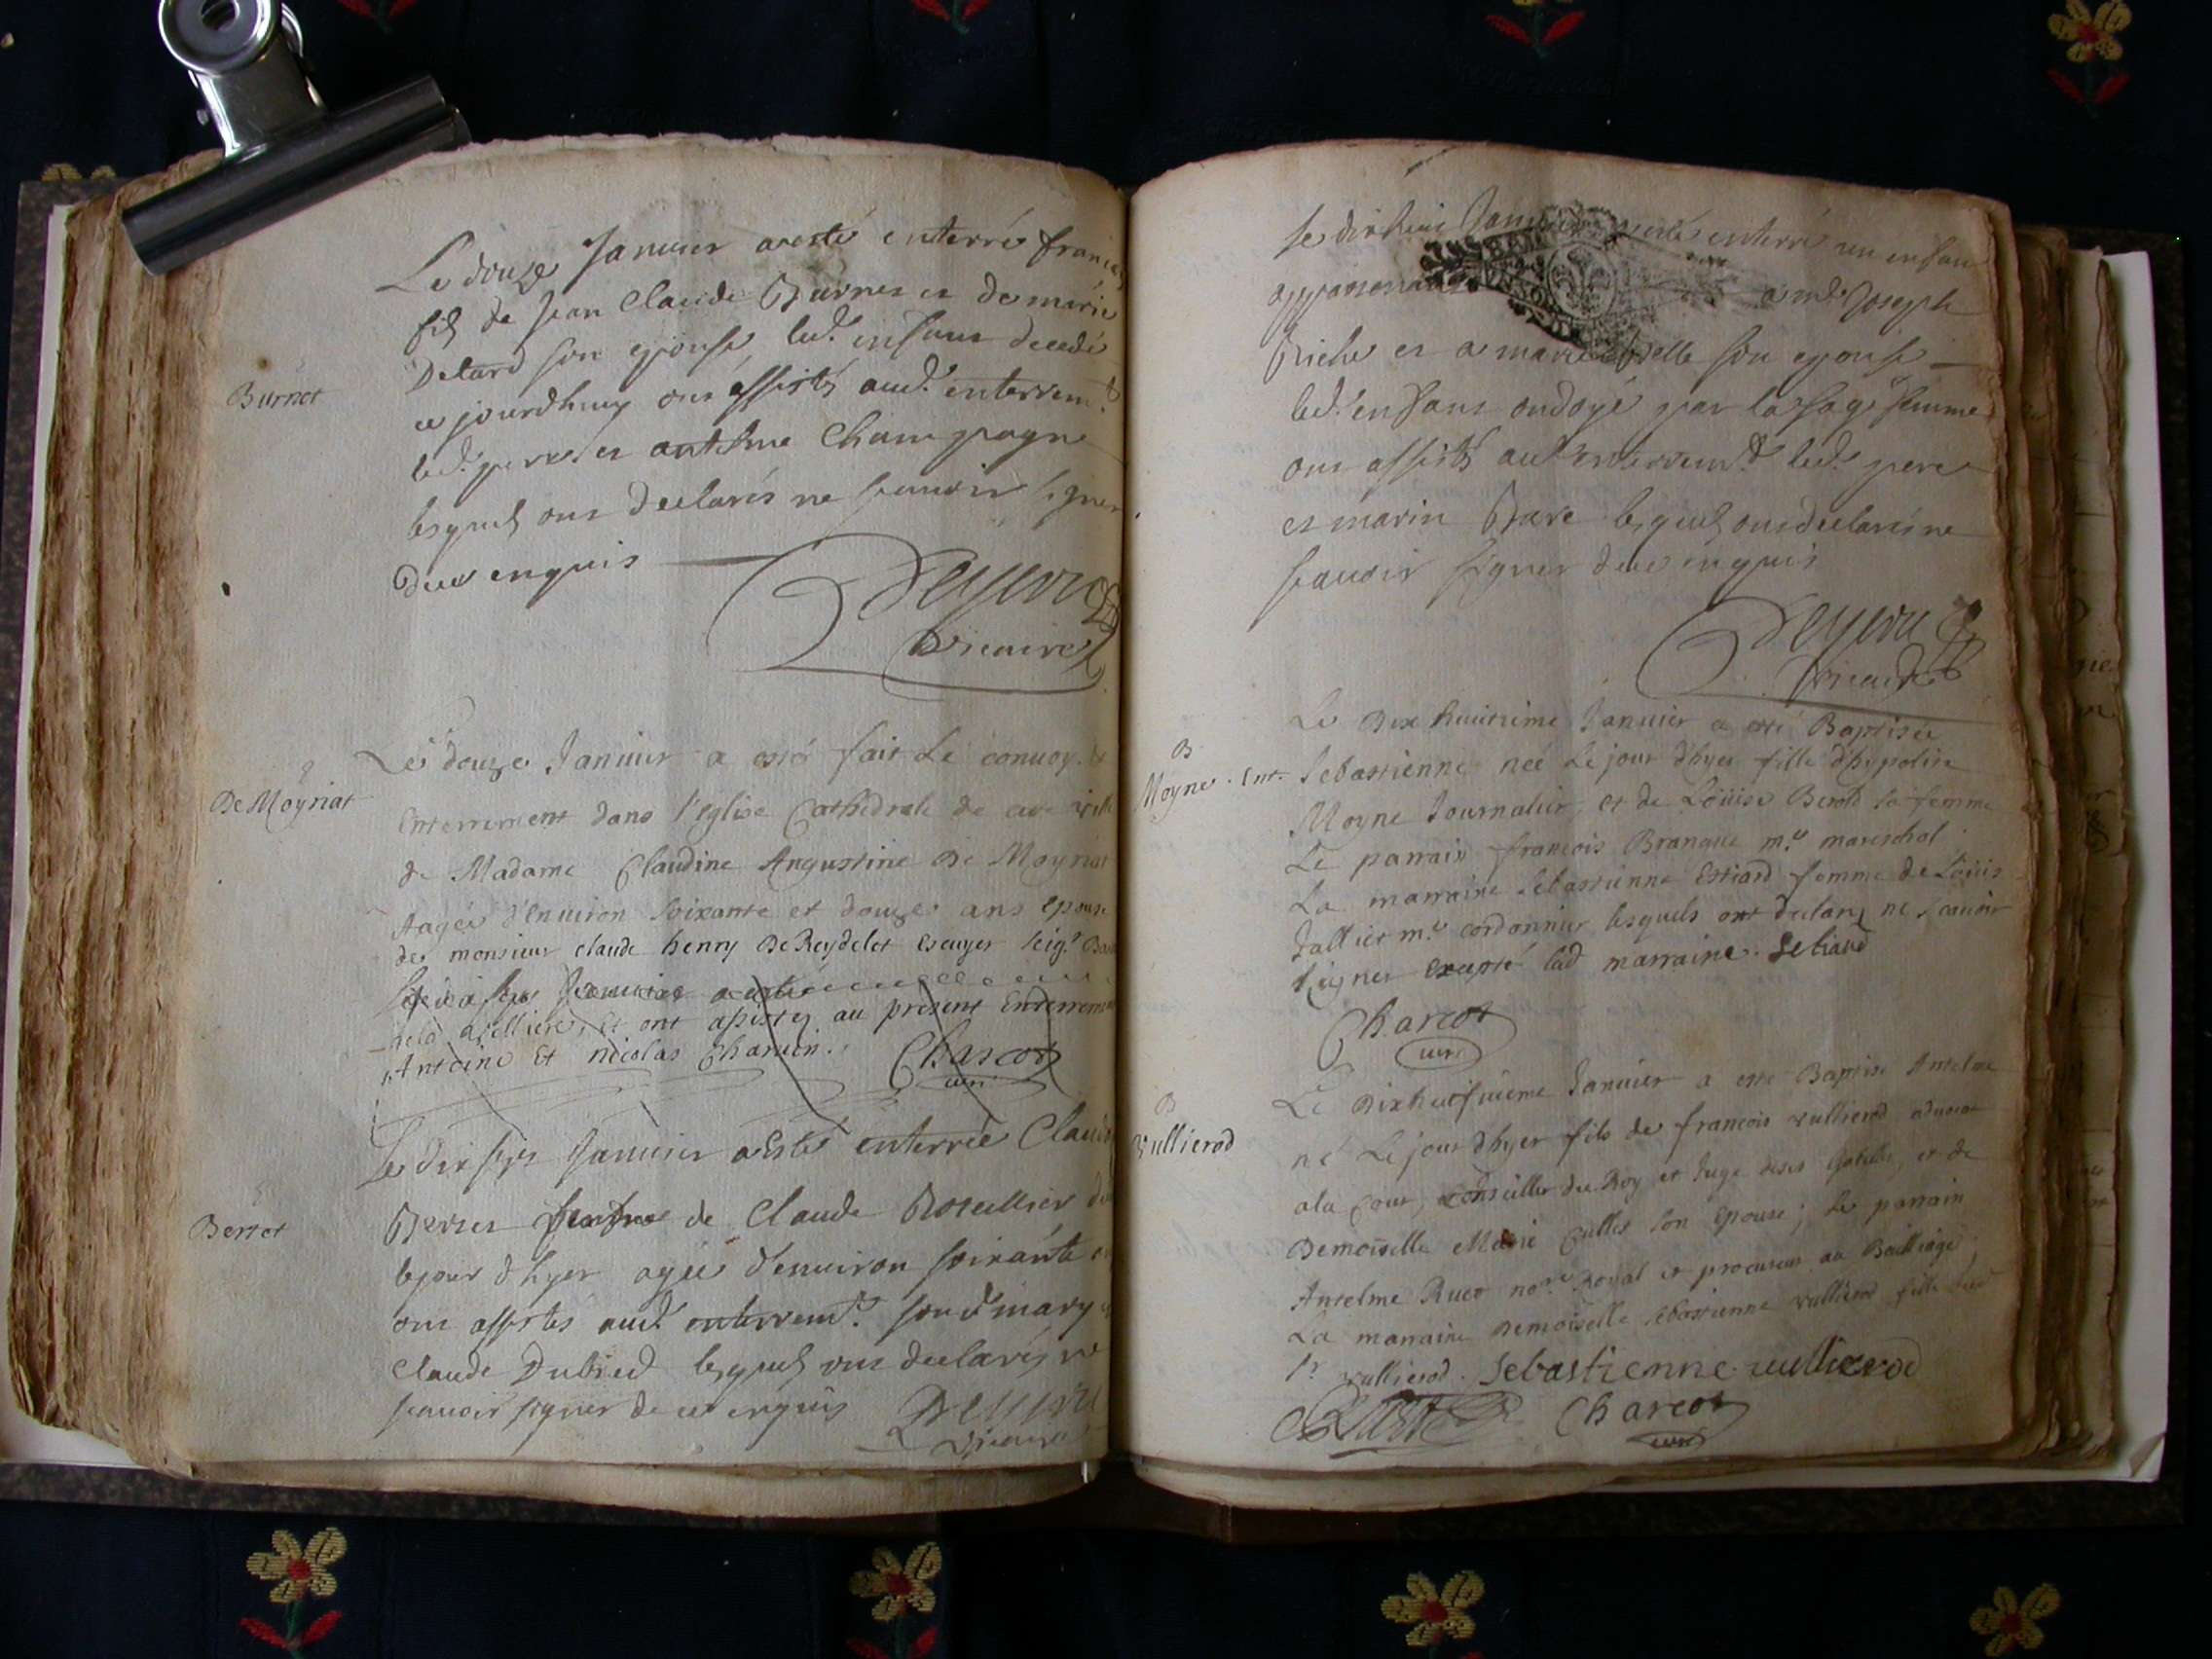 Le douze Januier a esté enterré francois
fils de Jean Claude Burnet et de marie
Detard son epouse led. enfant decedé
Burnet
ce jourdhuy ont assistés aud. enterrem.t
led. pere et antelme Champagne
lesquels ont declarés ne scauoir signer
de ce enquis
Deyeru
vicaire
Le douze Januier a esté fait Le conuoy &
De Moyriat
Enterrement dans l'eglise Cathedrale de cete ville
de Madame Claudine Angustine De Moyriat
Aagée d'enuiron soixante et douze ans epouse
de monsieur claude henry De Reydelet escuyer seig.r
Januier a esté
et ont assistez au present Enterrement
Antoine Et nicolas Charuin. Charcot
curé
Le dix sept Januier a esté enterrée Claudine
Berret
Berret femme de Claude Roteillier
le jour d hyer agée d'enuiron soixante
ont assistés aud. enterrem.t sond mary
Claude Dubied lesquels ont declarés ne
scauoir signer de ce enquis Deyeru
vicaire
Le dix huit Januier a esté enterré un enfant
appartenant a m.e Joseph
Riche et a marie son epouse
led. enfant ondoyé par la sage femme
ont assistés aud enterrem.t led. pere
et marin Bare lesquels ont declarés ne
scauoir signer de ce enquis
Deyeru
vicaire
Le Dix huitieme Januier a esté Baptisée
B
Moyne . Ent. Sebastienne neé Le jour d'hyer fille d'hypolite
Moyne Journalier, et de Loüise Berod sa femme
Le parrain francois Branque m.e mareschal
La marraine Sebastienne Estiard femme de Loüis
Jallier m.e cordonnier lesquels ont declarez ne scauoir
signer excepté lad marraine. Setiard
Charcot
curé
B
Le Dixneufuieme Januier a esté Baptisé Antelme
Vullierod
né Le jour d'hyer fils de francois vullierod aduocat
a la Cour, Conseiller du Roy et Juge des Gabelles, et de
Demoiselle Marie Cullet son Epouse; Le parrain
Antelme Ruet no.re Royal et procureur au Bailliage;
La marraine Demoiselle Sebastienne vullierod fille dud
S.r vullierod. Sebastienne vullierod
Charcot
curé